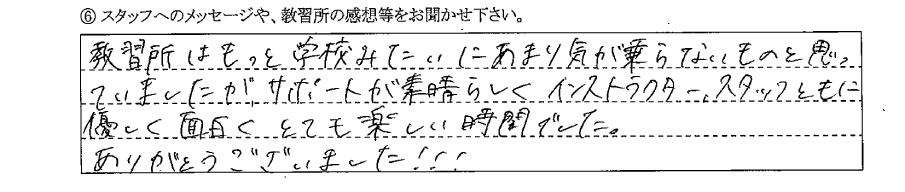 ⑥ スタッフへのメッセージや、教習所の感想等をお聞かせ下さい。
教習所はもっと学校みたいにあまり気が乗らないものと思っ
ていましたが、サポートが素晴らしく インストラクター、スタッフともに
優しく面白く とても楽しい時間でした。
ありがとうございました!!!